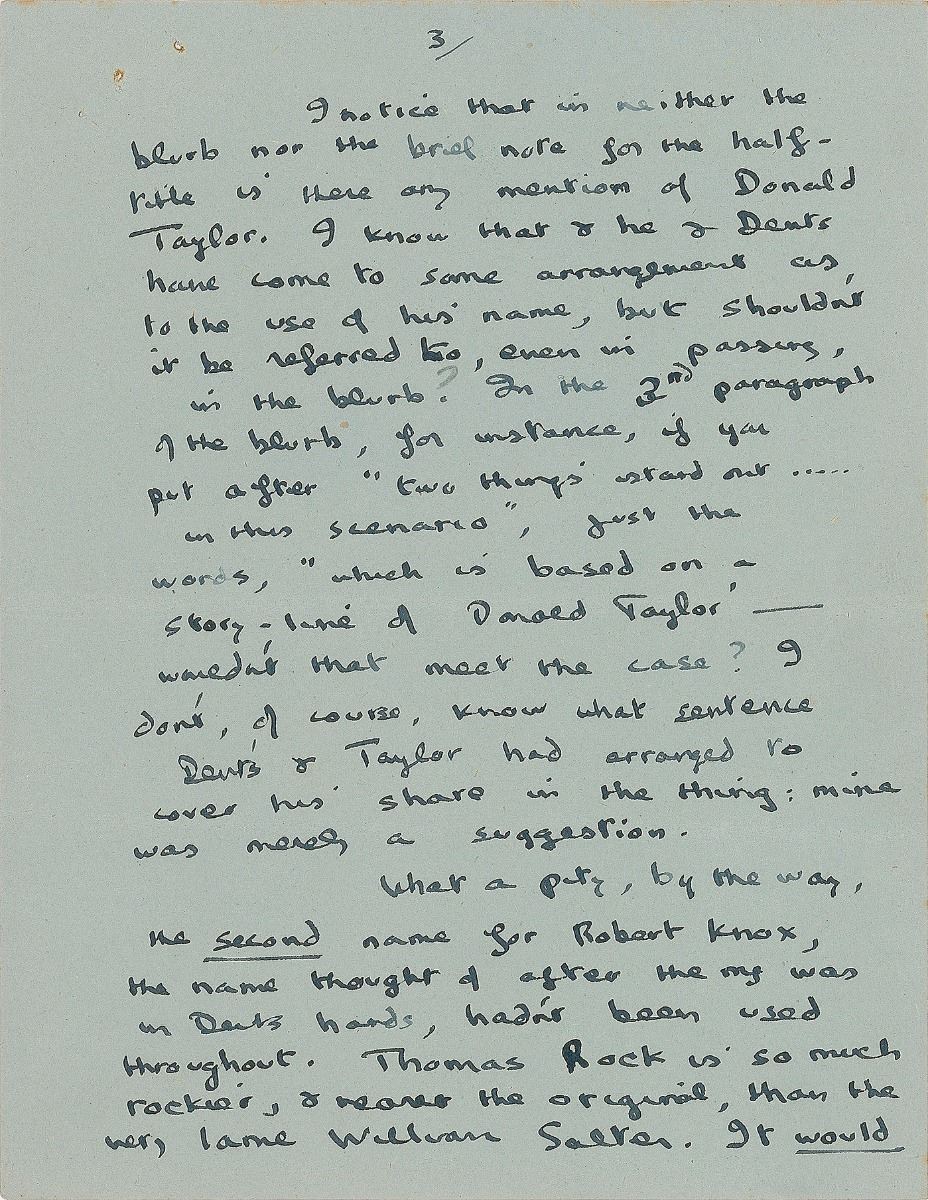 3/
I notice that in neither the
blurb nor the brief note for the half-
title is there any mention of Donald
Taylor. I know that & he & Dents
have come to some arrangement as
to the use of his name, but shouldn't
it be referred to, even in passing,
in the blurb? In the 3nd paragraph
of the blurb, for instance, if you
put after "two things stand out .....
in this scenario", just the
words, "which is based on a
story-line of Donald Taylor' —
wouldn't that meet the case? I
don't, of course, know what sentence
Dents & Taylor had arranged to
cover his share in the thing: mine
was merely a suggestion.
What a pity, by the way,
the second name for Robert Knox,
the name thought of after the ms was
in Dents hands, hadn't been used
throughout. Thomas Rock is so much
rockier, & nearer the original, than the
very lame William Salter. It would